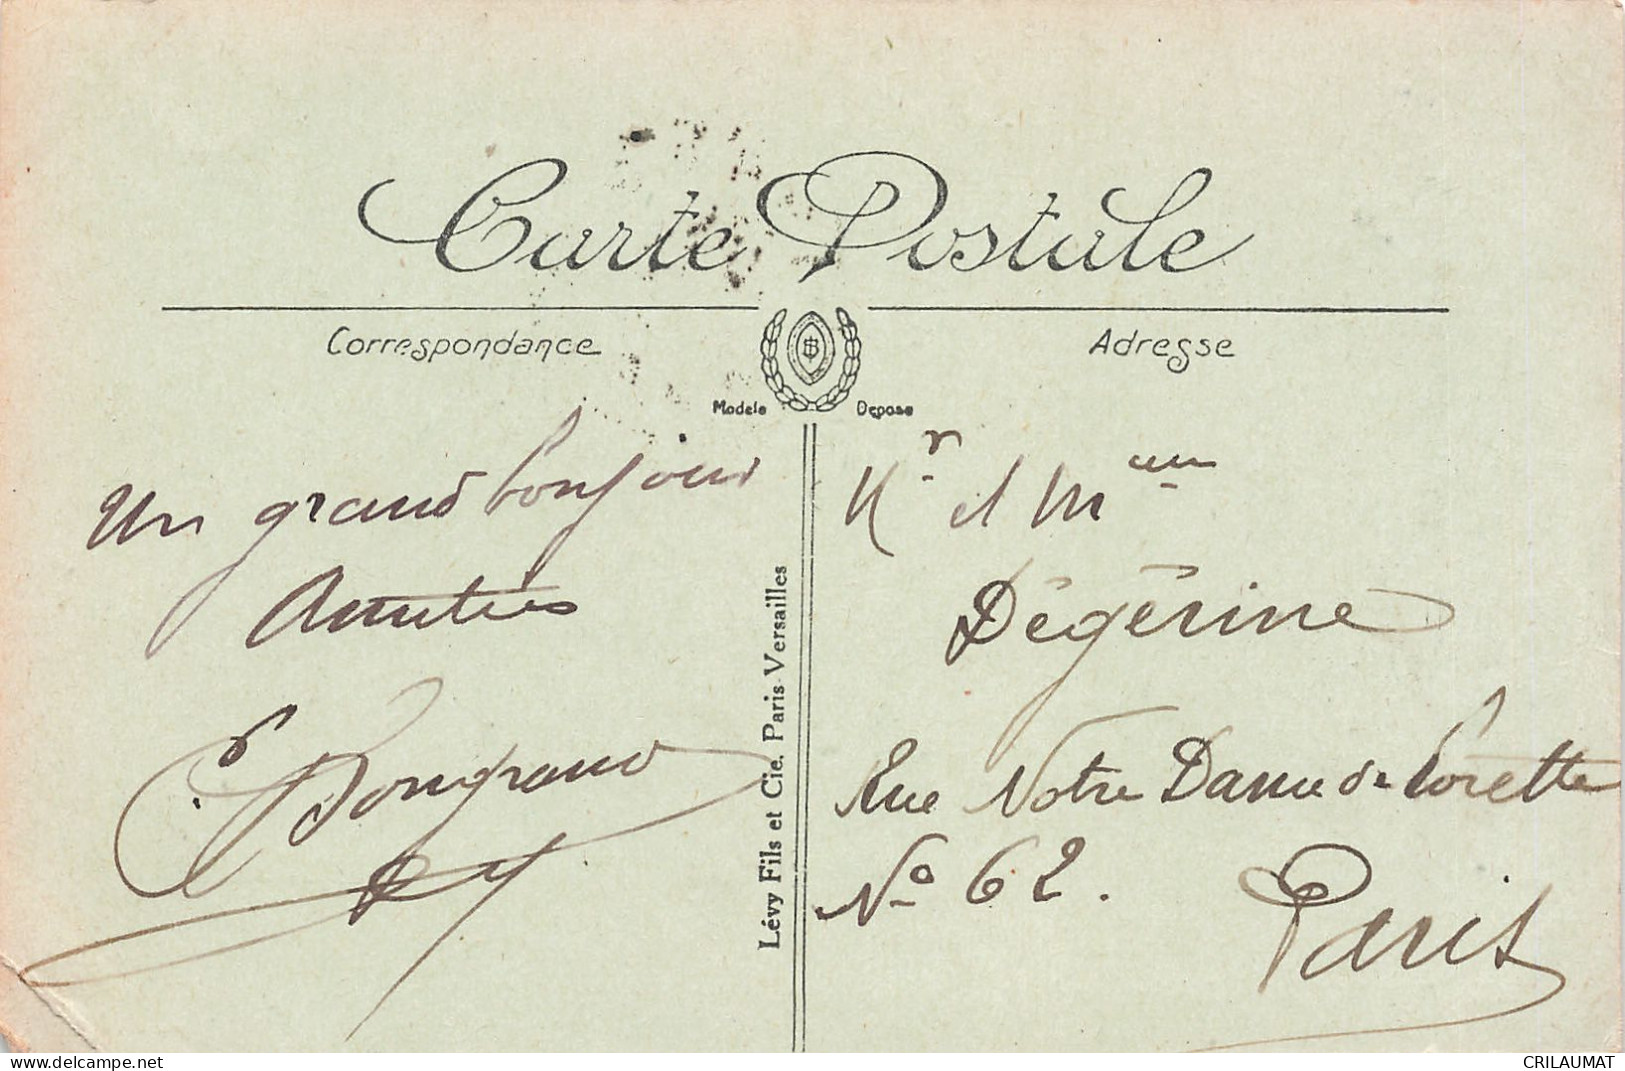 Carte Postale
Correspondance
Adresse
Modele Depose
Un grand bonjour
Amitiés
Mr et Mme
Dégérine
Rue Notre Dame de Lorette
No 62.
Paris
Lévy Fils et Cie. Paris-Versailles
www.delcampe.net
CRILAUMAT